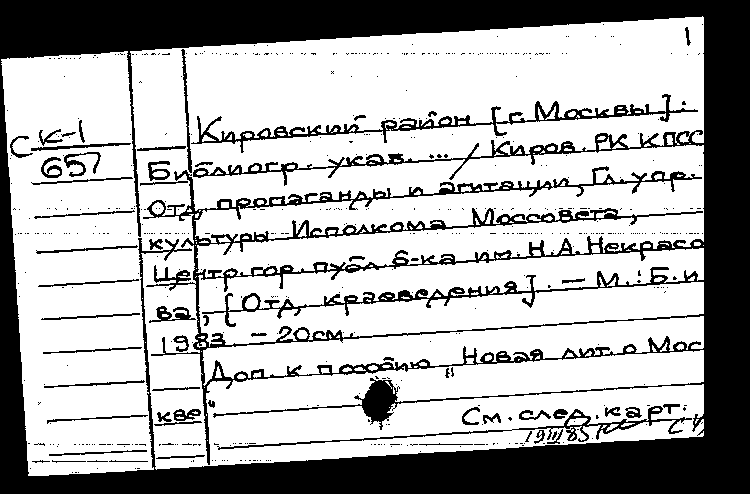 1
С К-1
657
Кировский район [г. Москвы]:
Библиогр. указ. ... / Киров. РК КПСС
Отд. пропаганды и агитации, Гл. упр.
культуры Исполкома Моссовета,
Центр. гор. публ. б-ка им. Н.А. Некрасо
ва, [Отд. краеведения]. — М.: Б.и
1983 - 20см.
Доп. к пособию „Новая лит. о Мос
кве".
См. след. карт.
19III85